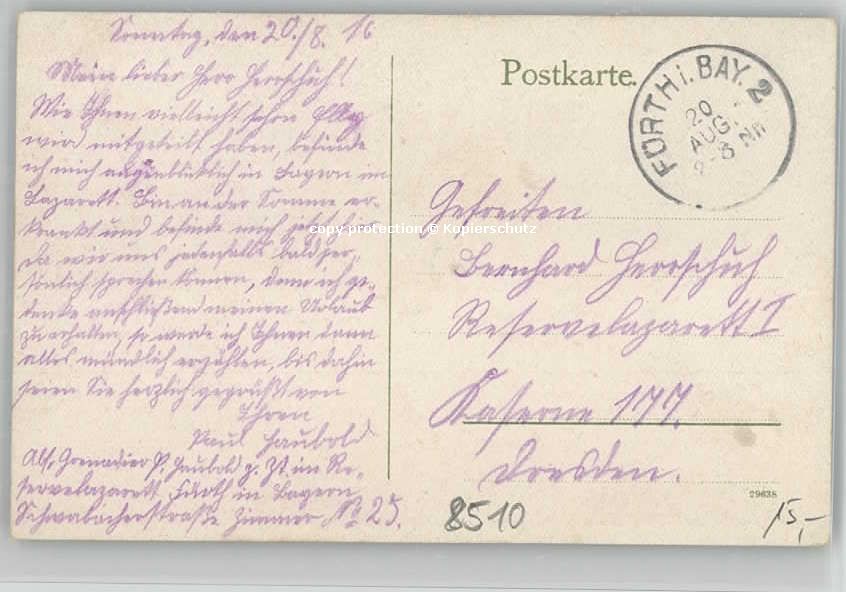 Sonntag, den 20./8. 16
Mein lieber Herr Herrschuh!
Wie Ihnen vielleicht schon Elly
wird mitgeteilt haben, befinde
ich mich augenblicklich in Bayern im
Lazarett. Bin an der Somme er-
krankt und befinde mich jetzt hier
Da wir uns jedenfalls bald per-
sönlich sprechen können, denn ich ge-
denke anschließend meinen Urlaub
zu erhalten, so werde ich Ihnen dann
alles mündlich erzählen, bis dahin
seien Sie herzlich gegrüßt von
Ihren
Paul Haubold
Abs. Grenadier P. Haubold z. Zt. im Re-
servelazarett Fürth in Bayern
Schwabacherstraße Zimmer No 25.
Postkarte.
FÜRTH i. BAY. 2
20
AUG.
2-3 Nm
Gefreiten
Bernhard Herrschuh
Reservelazarett I
Kaserne 177.
Dresden.
29638
8510
15,-
copy protection © Kupierschutz